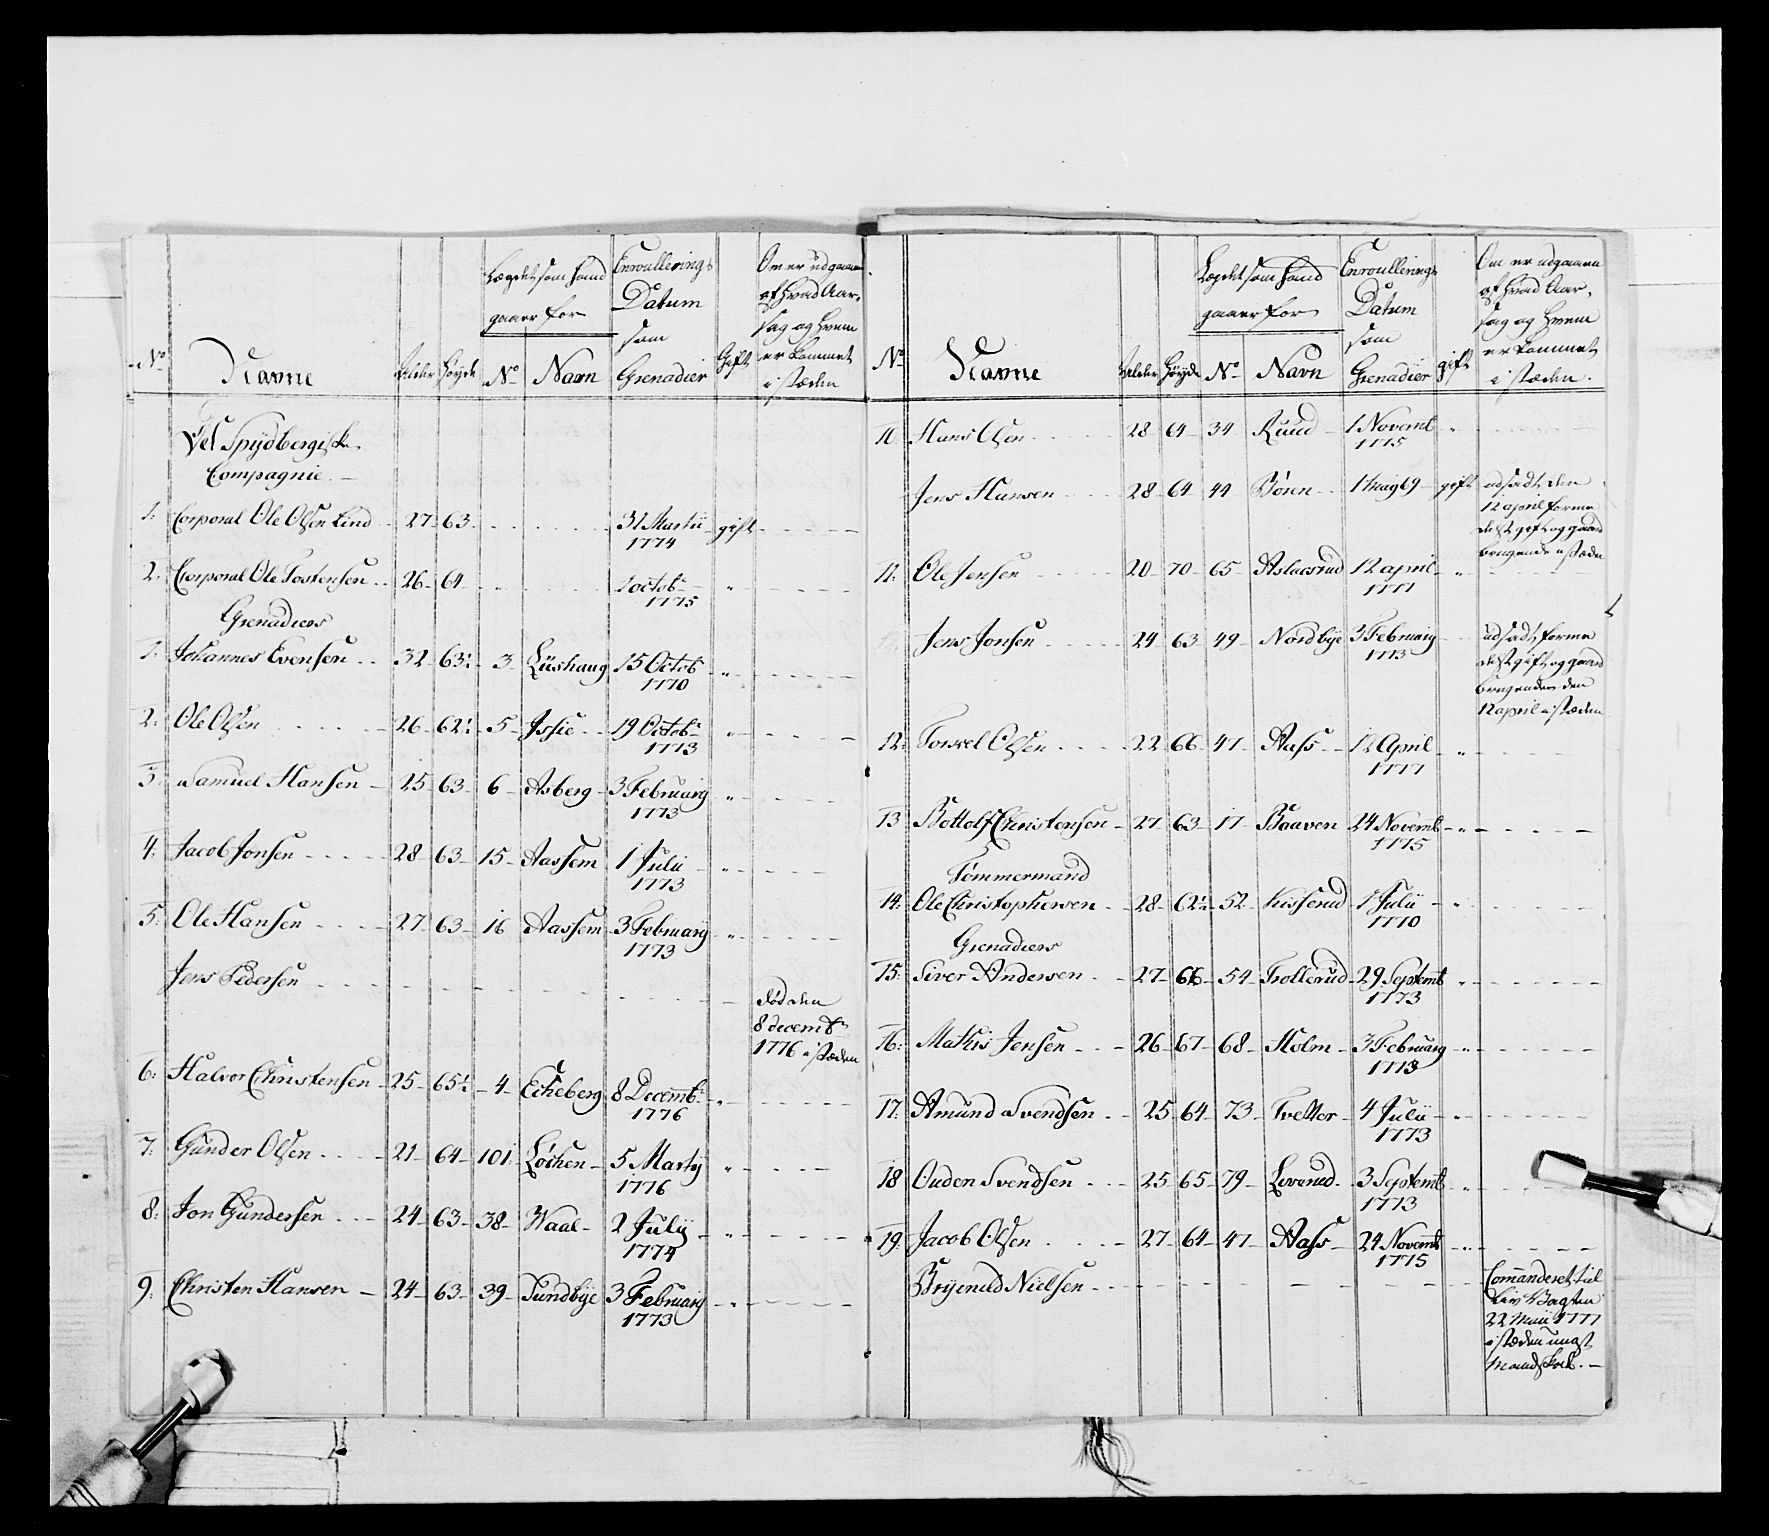 No
Navne
Alder
Høyde
Lægdet som hand
gaaer for
No
Navn
Enroullerings
Datum
som
Grenadier
Gift
Om er udgaaen
af hvad Aar-
sag og hvem
er kommet
i stæden
Det Spydbergiske
Compagnie.
1. Corporal Ole Olsen Lind 27 63 31 Martii gift
1774
2. Corporal Ole Tostensen 26 64 1 octob:
1775
Grenadiers
1. Johannes Evensen 32 63½ 3 Lüshaug 15 Octob
1770
2. Ole Olsen 26 62½ 5 Jssie 19 Octob:
1773
3. Samuel Hansen 25 63 6 Asberg 3 Februarij
1773
4. Jacob Jonsen 28 63 15 Aassem 1 Julii
1773
5. Ole Hansen 27 63 16 Aassem 3 Februarij
1773
Jens Pedersen død den
8 decemb:
1776 i stæden
6. Halvor Christensen 25 65½ 4 Echeberg 8 Decemb:
1776
7. Gunder Olsen 21 64 101 Løchen 5 Martij
1776
8. Jon Gundersen 24 63 38 Waal 2 Julij
1774
9. Christen Hansen 24 63 39 Sundbÿe 3 Februarij
1773
No
Navne
Alder
Høyde
Lægdet som hand
gaaer for
No
Navn
Enroullerings
Datum
som
Grenadier
gift
Om er udgaaen
af hvad Aar-
sag og hvem
er kommet
i stæden.
10 Hans Olsen 28 64 34 Ruud 1 Novemb
1775
Jens Hansen 28 64 44 Børen 1 maÿ 69 gift udsadt den
12 april forme
delst gift og gaard
brugende i stæden
11. Ole Jensen 20 70 65 Aslacsrud 12 april
1777
Jens Jonsen 24 63 49 Nordbÿe 3 Februarij udsadt forme
1773
delst gift og gaard
brugende den
12 april i stæden
12. Torkel Olsen 22 66 47 Aass 12 April
1777
13 Bottolf Christensen 27 63 17 Baaven 24 Novemb
1775
Tømmermand
14. Ole Christophersen 28 62½ 52 Kisserud 1 Julii
1770
Grenadiers
15. Siver Andersen 27 66 54 Trollerud 29 Septemb
1773
16. Mathis Jensen 26 67 68 Holm 3 Februarij
1773
17. Amund Svendsen 25 64 73 Tvetter 4 Julii
1773
18 Ouden Svendsen 25 65 79 Loverud 3 Septemb
1773
19. Jacob Olsen 27 64 47 Aass 24 Novemb
1775
Brÿnild Nielsen Com̅anderet til
Liv Vagten
22 Maii 1777
i stæden ungt
Mandskab.